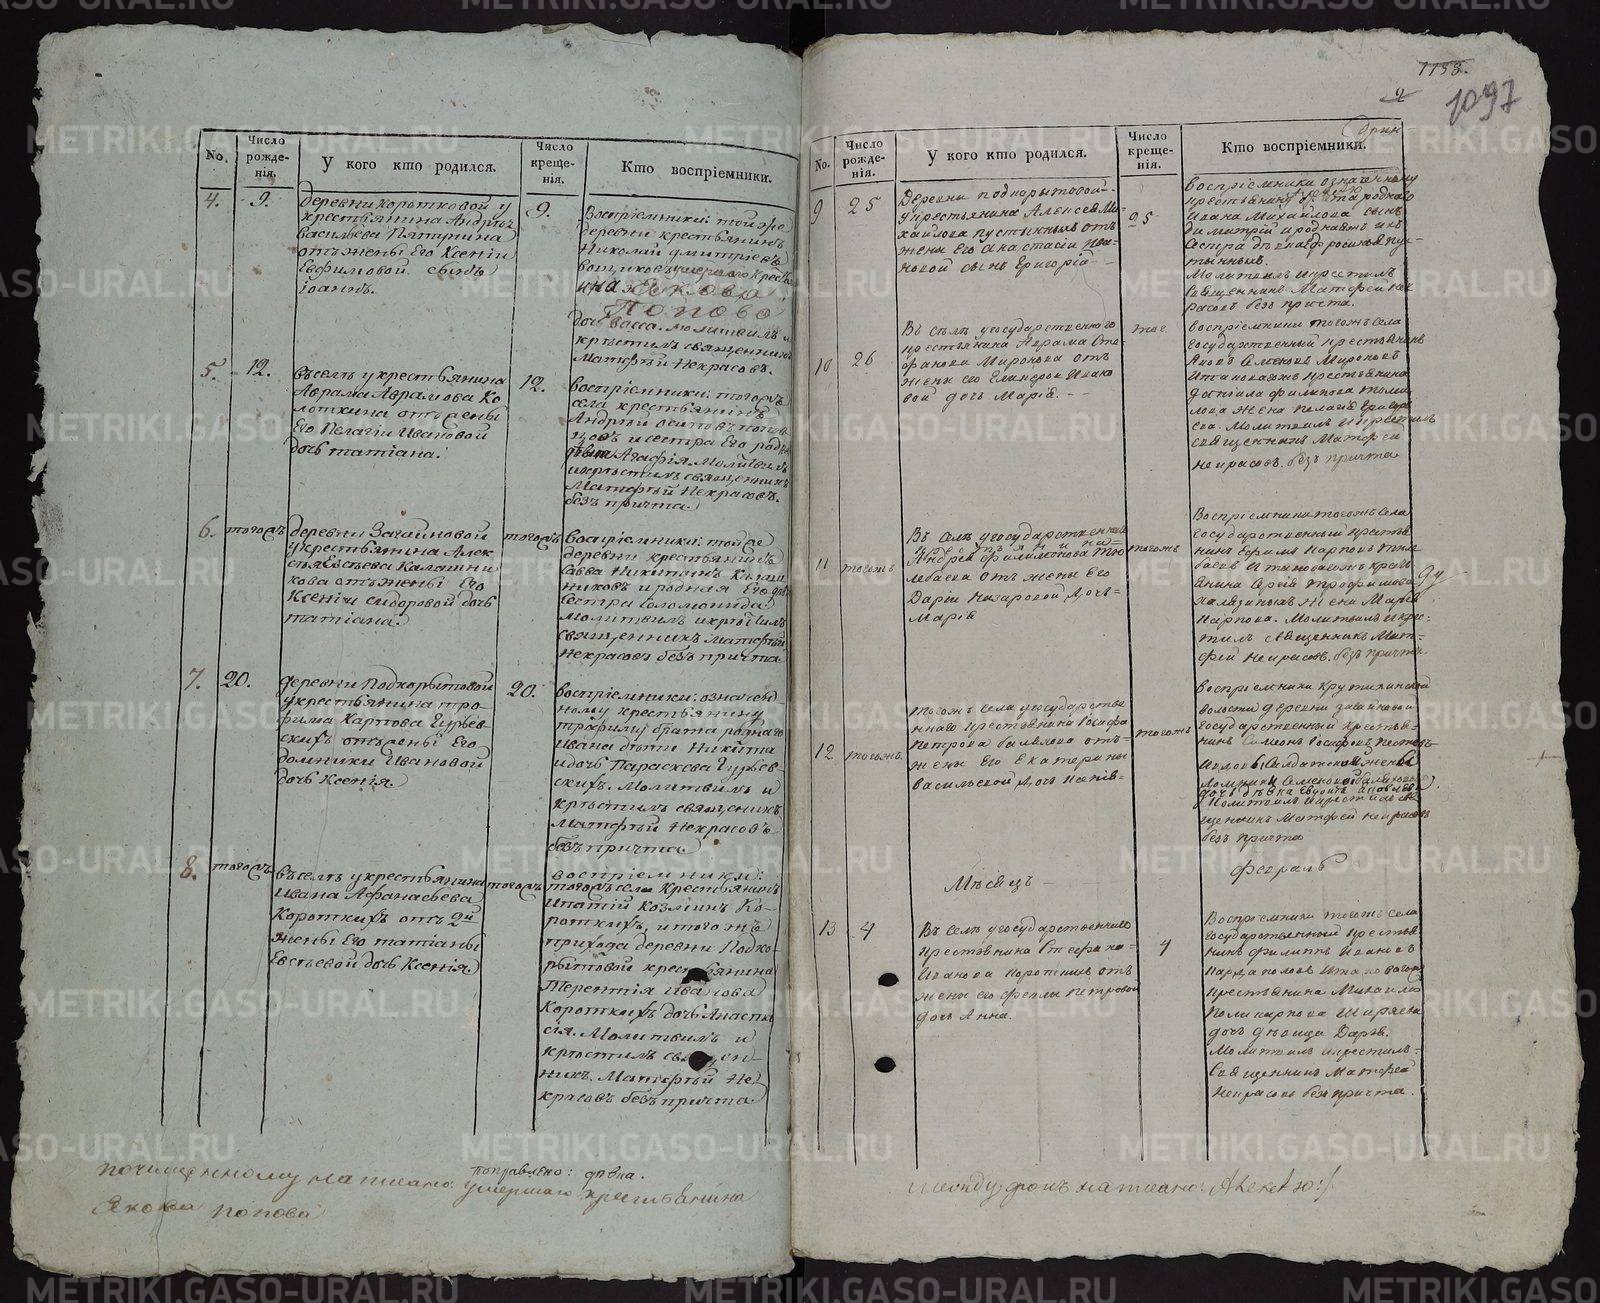 No.
Число рожде-нія.
У кого кто родился.
Число креще-нія.
Кто воспріемники.
4.
9.
деревни коротковой у
крестьянина Андрея
васильева Пятунина
отъ жены Его Ксеніи
Евфимовой сынъ
іоаннъ.
9.
Воспріемники: той же
деревни крестьянинъ
Николай дмитріевъ
умершаго крест
Яковa
Попова
дочь васса. молитвилъ и
крьстилъ священникъ
Матфтьй Некрасовъ.
5.
12.
въ селть у крестьянина
Аврама Аврамова Ко
лоткина отъ жены
Его Пелагіи Ивановой
дочь татіана.
12.
воспріемники: тогожъ
села крестьянинъ
Андрей осиповъ попов
и сестра Его родн
дтьвка Агафія. Молитвилъ
и крьстилъ священникъ
Матфтьй Некрасовъ.
безъ причта.
6.
тогожъ
деревни Зачаиновой
у крестьянина Алек
стья Евстьева Калашни
кова отъ жены Его
Ксеніи сидоровой дочь
татіана.
тогожъ
воспріемники: той же
деревни крестьянинъ
савва Никитинъ Калаш
никовъ и родная Его
сестра соломонида.
молитвилъ и крьстилъ
священникъ матфтьй
Некрасовъ безъ причта
7.
20.
деревни Подкорытовой
у крестьянина тро-
фима Карпова Гурьев-
скихъ отъ жены Его
домники Ивановой
дочь Ксенія.
20.
воспріемники: означен
ному крестьянину
трофиму брата роднаго
Ивана дтьти Никита
и дочь Параскева Гурьев-
скихъ. Молитвилъ и
крьстилъ священникъ
Матфтьй Некрасовъ
безъ причта
8.
тогожъ
въ селть у крестьянина
Ивана Афанасьева
Короткихъ отъ 2й
жены Его татіаны
Евстьевой дочь Ксенія.
тогожъ
воспріемники:
тогожъ села Крестьянинъ
Ипатій Козминъ Ко-
роткихъ, и тогожъ
прихода деревни Подко-
рытовой крестьянина
Терентія Иванова
Короткихъ дочь Анаста
сія. Молитвилъ и
крьстилъ священ-
никъ. Матфтьй Не-
красовъ безъ причта.
поправлено: дтьвка.
почищенному написано: умершаго крестьянина
Якова попова
1133.
2
1097
No.
Число рожде-нія.
У кого кто родился.
Число креще-нія.
Кто воспріемники.
9
25
Деревни подкорытовой
у крестьянина Алексея Ми-
хайлова пустынныхъ отъ
жены Его Анастасіи Ива-
новой сынъ Григорій
25
Воспріемники означенному
крестьянину брата роднаго
Ивана Михайлова сынъ
Димитрій и родная ихъ
сестра дтьвка Ефросинья пу-
стынныхъ.
Молитвилъ и крестилъ
священникъ Матфей Нек
расовъ безъ причта.
10
26
Въ сельть у государственнаго
крестьянина Аврама Сте
фанова Миронова отъ
жены его Гликеріи Ивано
вой дочь Марія.
тое.
воспріемники тогожъ села
государственный крестьянинъ
Яковъ Семеновъ Мироновъ
и таковагожъ крестьянина
даніила филипова
жена пелагія Григорь
ева. Молитвилъ и крестилъ
священникъ Матфей
некрасовъ. безъ причта
11
тогожъ
Въ сельть у государственнаго
крестьянина
Андрея Филимонова
отъ жены Его
Даріи Назаровой дочь
Марія
тогожъ
Воспріемники тогожъ села
государственный крестья
нинъ Ефимъ Карповъ
и таковагожъ кресть
янина Сергія трофимова
жена Марія
Карпова. Молитвилъ и кре-
стилъ священникъ Мат-
фей некрасовъ. безъ причта
12
тогожъ.
тогожъ села у государстве
ннаго крестьянина
петрова отъ
жены Его Екатерины
васильевой дочь Ксенія
тогожъ
Воспріемники Крутихинской
волости деревни
государственный крестья-
нинъ
солдатской жены
Домники Семеновой
дочь дтьвка Евдокія
Молитвилъ и крестилъ свя
щенникъ Матфей некрасовъ
безъ причта
Мтьсяцъ
февраль
13
4
Въ сельть у государственнаго
крестьянина Стефана
Иванова Короткихъ отъ
жены его феклы петровой
дочь Анна.
4
Воспріемники тогожъ села
государственный крестья
нинъ филиппъ Ивановъ
и таковагожъ
крестьянина Михаила
поликарпова Ширяева
дочь дтьвица Дарья.
Молитвилъ и крестилъ
священникъ Матфей
Некрасовъ безъ причта.
между строкъ написано: Алексею